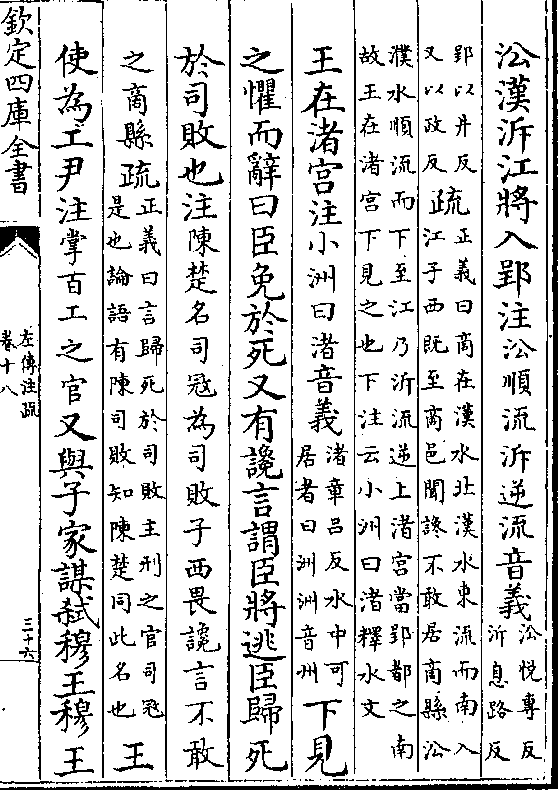 沿漢泝江將入郢注沿順流泝逆流音義沿悅專反泝息路反
郢以井反又以政反疏正義曰商在漢水北漢水東流而南入江子西既至商邑聞讒不敢居商縣沿
濮水順流而下至江乃泝流逆上渚宮當郢都之南故王在渚宮下見之也下注云小洲曰渚釋水文
王在渚宮注小洲曰渚音義渚章呂反水中可居者曰洲洲音州下見
之懼而辭曰臣免於死又有讒言謂臣將逃臣歸死
於司敗也注陳楚名司寇為司敗子西畏讒言不敢
之商縣疏正義曰言歸死於司敗主刑之官司寇是也論語有陳司敗知陳楚同此名也王
使為工尹注掌百工之官又與子家謀弒穆王穆王
欽定四庫全書
左傳注疏
卷十八
三十六